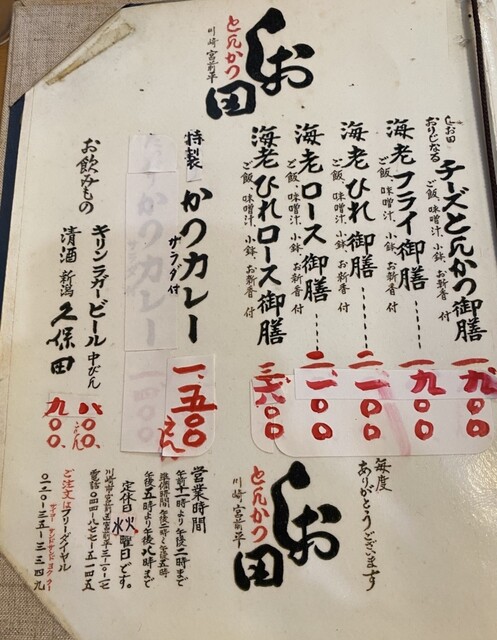 とんかつ
しお田
川崎 宮前平
しお田
おりじなる
チーズとんかつ御膳
ご飯、味噌汁、小鉢、お新香 付
一、九〇〇
海老フライ御膳
ご飯、味噌汁、小鉢、お新香 付
一、九〇〇
海老ひれ御膳
ご飯、味噌汁、小鉢、お新香 付
二、一〇〇
海老ロース御膳
ご飯、味噌汁、小鉢、お新香 付
二、一〇〇
海老ひれロース御膳
ご飯、味噌汁、小鉢、お新香 付
三、六〇〇
特製 かつカレー
サラダ付
一、五〇〇
えん
かつカレー
一、四〇〇
お飲みもの
キリンラガービール 中びん
八〇〇
えん
清酒 新潟 久保田
九〇〇
毎度
ありがとうございます
とんかつ
しお田
川崎 宮前平
営業時間
午前十一時より午後二時まで
準備時間 午後二時〜午後五時
午後五時より午後八時まで
定休日 水火 曜日です。
川崎市宮前区宮前平三-一〇-一七
電話〇四四-八七七-五一四五
ご注文はフリーダイヤル
〇一二〇-三五-三三四九